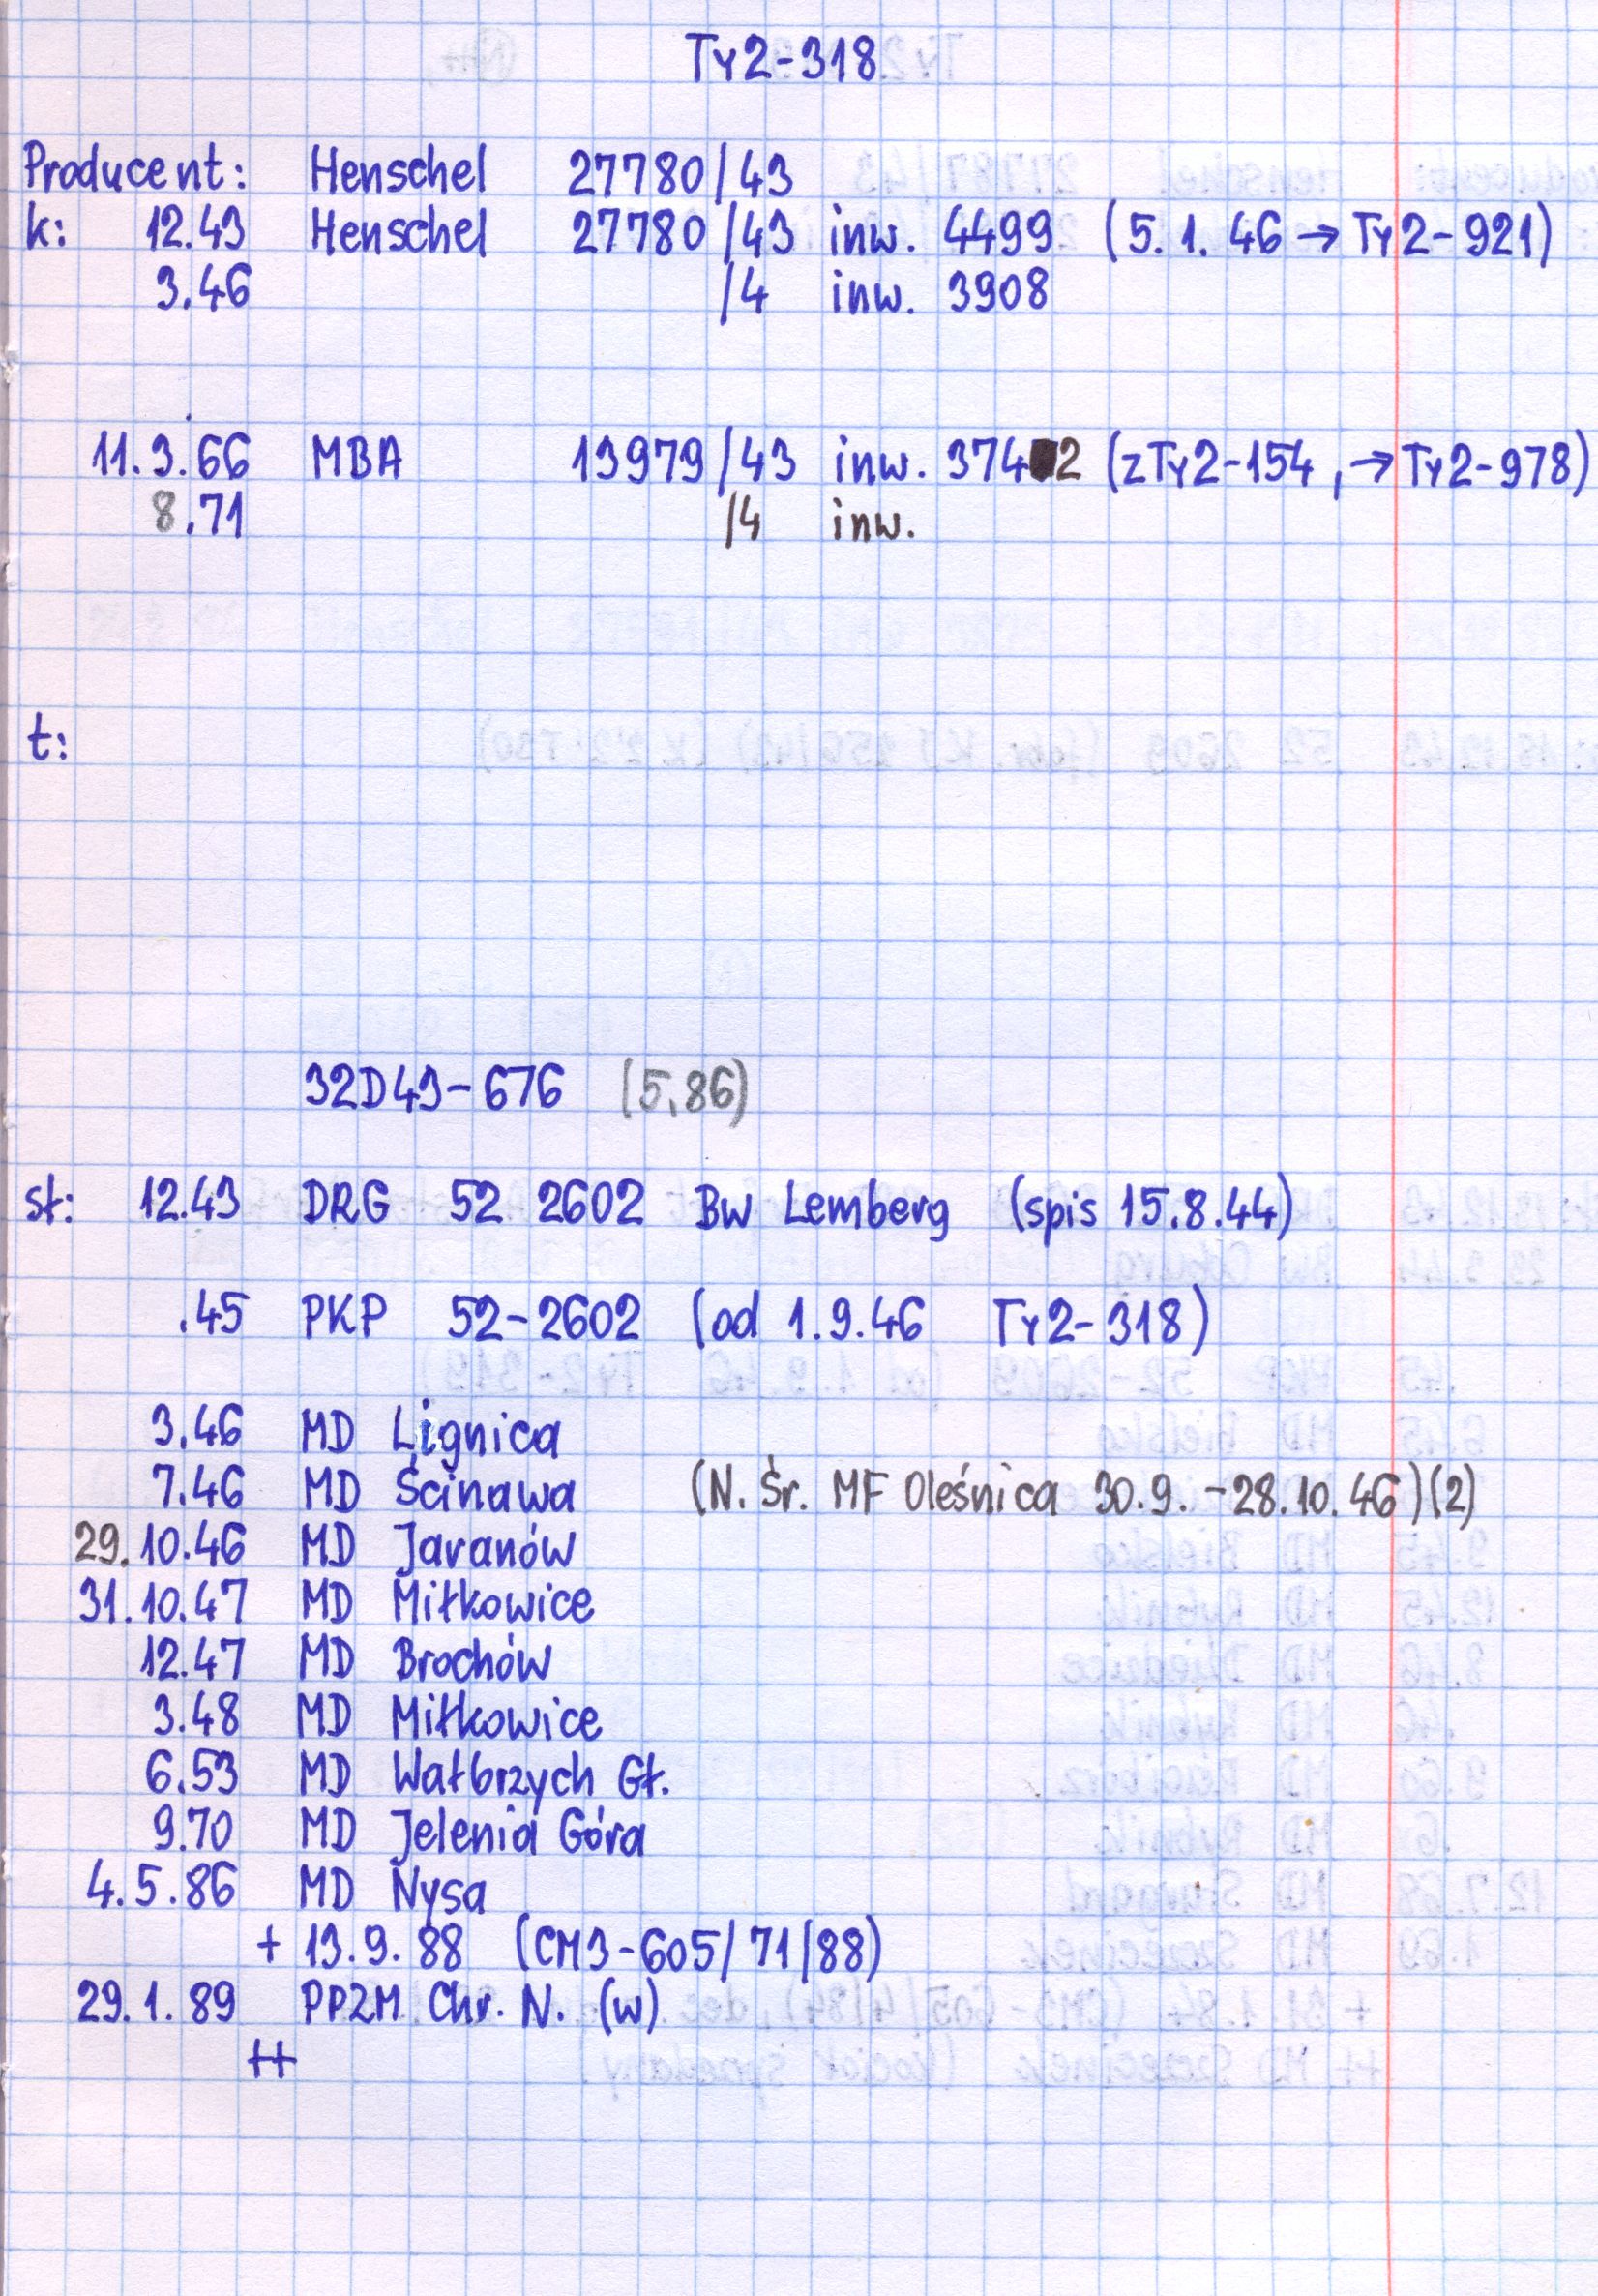 Ty2-318
Producent: Henschel 27780/43
k: 12.43 Henschel 27780/43 inw. 4499 (5.1.46 → Ty2-921)
3.46 /4 inw. 3908
11.3.66 MBA 13979/43 inw. 3742 (z Ty2-154, → Ty2-978)
8.71 /4 inw.
t:
32D43-676 (5.86)
st: 12.43 DRG 52 2602 Bw Lemberg (spis 15.8.44)
.45 PKP 52-2602 (od 1.9.46 Ty2-318)
3.46 MD Lignica
7.46 MD Ścinawa (N. Śr. MF Oleśnica 30.9.-28.10.46)(2)
29.10.46 MD Jaranów
31.10.47 MD Miłkowice
12.47 MD Brochów
3.48 MD Miłkowice
6.53 MD Wałbrzych Gł.
9.70 MD Jelenia Góra
4.5.86 MD Nysa
+ 13.9.88 (CM3-605/71/88)
29.1.89 PPZM Chr. N. (w)
++